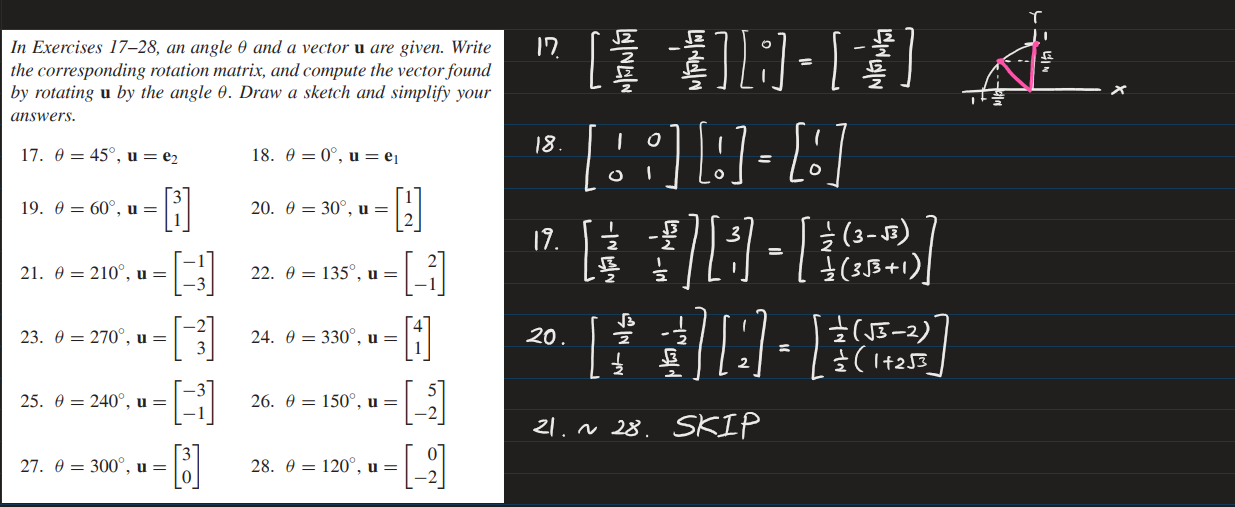 In Exercises 17–28, an angle θ and a vector u are given. Write
the corresponding rotation matrix, and compute the vector found
by rotating u by the angle θ. Draw a sketch and simplify your
answers.
17. θ = 45°, u = e₂ 18. θ = 0°, u = e₁
19. θ = 60°, u = [3; 1] 20. θ = 30°, u = [1; 2]
21. θ = 210°, u = [−1; −3] 22. θ = 135°, u = [2; −1]
23. θ = 270°, u = [−2; 3] 24. θ = 330°, u = [4; 1]
25. θ = 240°, u = [−3; −1] 26. θ = 150°, u = [5; −2]
27. θ = 300°, u = [3; 0] 28. θ = 120°, u = [0; −2]
17. [√2/2 -√2/2; √2/2 √2/2] [0; 1] = [-√2/2; √2/2]
1
√2/2
x
18. [1 0; 0 1] [1; 0] = [1; 0]
19. [1/2 -√3/2; √3/2 1/2] [3; 1] = [1/2(3-√3); 1/2(3√3+1)]
20. [√3/2 -1/2; 1/2 √3/2] [1; 2] = [1/2(√3-2); 1/2(1+2√3]
21. ~ 28. SKIP